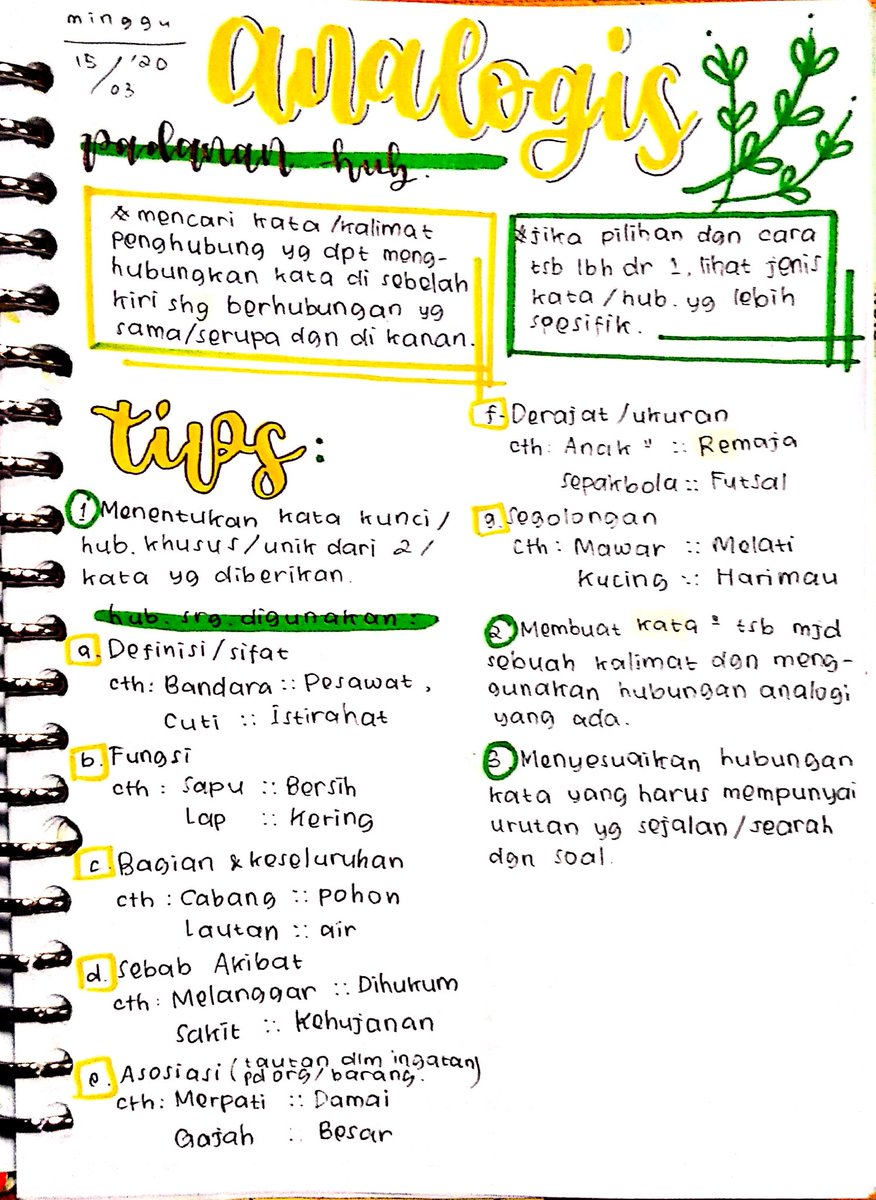 minggu
15/03'20
analogis
padanan hub.
* mencari kata/kalimat
penghubung yg dpt meng-
hubungkan kata di sebelah
kiri shg berhubungan yg
sama/serupa dgn di kanan.
*jika pilihan dgn cara
tsb lbh dr 1, lihat jenis
kata/hub. yg lebih
spesifik.
tips:
1 Menentukan kata kunci/
hub. khusus/unik dari 2/
kata yg diberikan.
hub. srg. digunakan:
a. Definisi/sifat
cth: Bandara :: Pesawat,
Cuti :: Istirahat
b. Fungsi
cth: Sapu :: Bersih
Lap :: Kering
c. Bagian & keseluruhan
cth: Cabang :: pohon
Lautan :: air
d. Sebab Akibat
cth: Melanggar :: Dihukum
Sakit :: Kehujanan
e. Asosiasi (tautan dlm ingatan)
pd org/barang.
cth: Merpati :: Damai
Gajah :: Besar
f. Derajat/ukuran
cth: Anak" :: Remaja
Sepakbola :: Futsal
g. Segolongan
cth: Mawar :: Melati
Kucing :: Harimau
2 Membuat kata² tsb mjd
sebuah kalimat dgn meng-
gunakan hubungan analogi
yang ada.
3 Menyesuaikan hubungan
kata yang harus mempunyai
urutan yg sejalan/searah
dgn soal.